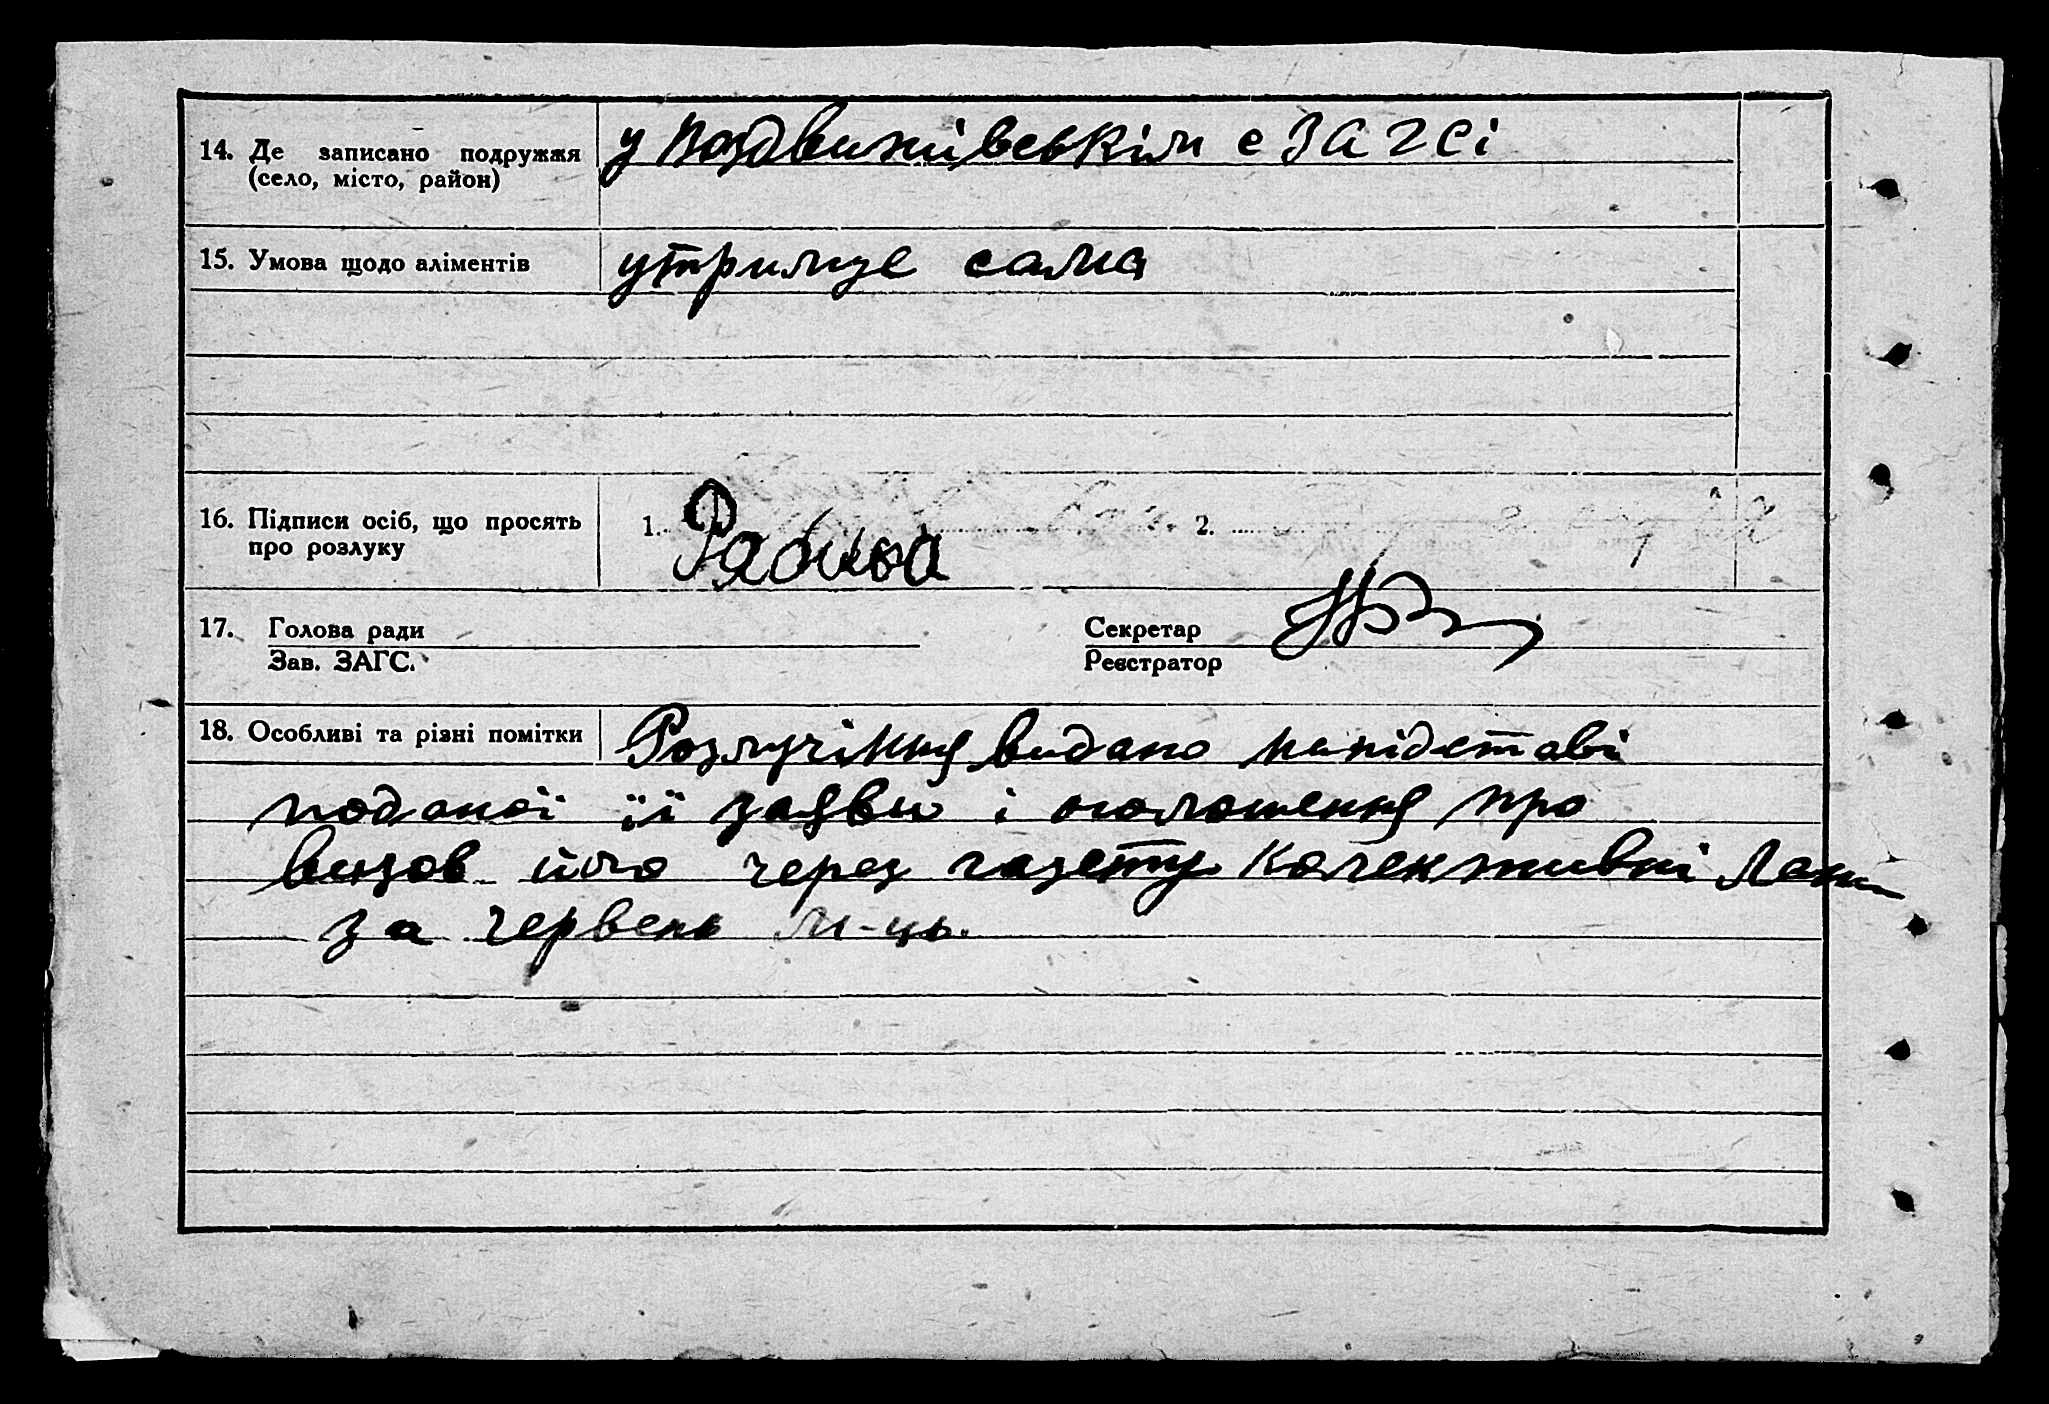 14. Де записано подружжя у Воздвижнівськім с ЗАГСі
(село, місто, район)
15. Умова щодо аліментів утримує сама
16. Підписи осіб, що просять 1. 2.
про розлуку
17. Голова ради Секретар
Зав. ЗАГС. Реєстратор
18. Особливі та різні помітки Розлучіння видано на підставі
поданої її заяви і оголошення про
визов його через газету Колективні Лани
за червень м-ць.